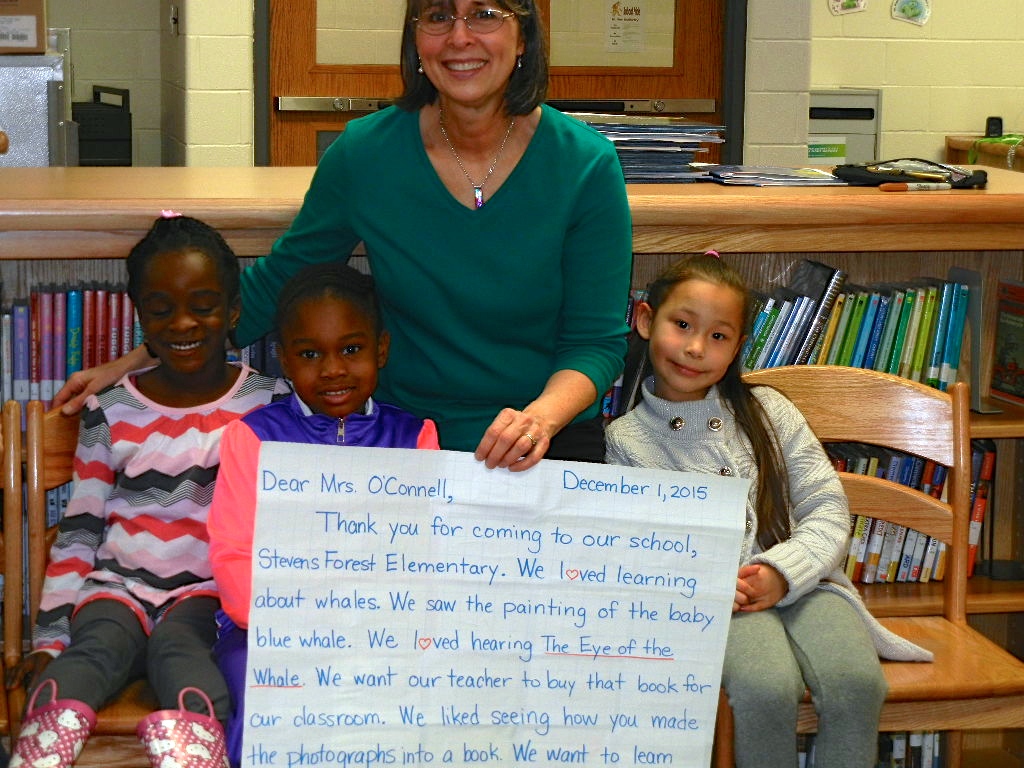 Dear Mrs. O'Connell, December 1, 2015
Thank you for coming to our school,
Stevens Forest Elementary. We loved learning
about whales. We saw the painting of the baby
blue whale. We loved hearing The Eye of the
Whale. We want our teacher to buy that book for
our classroom. We liked seeing how you made
the photographs into a book. We want to learn